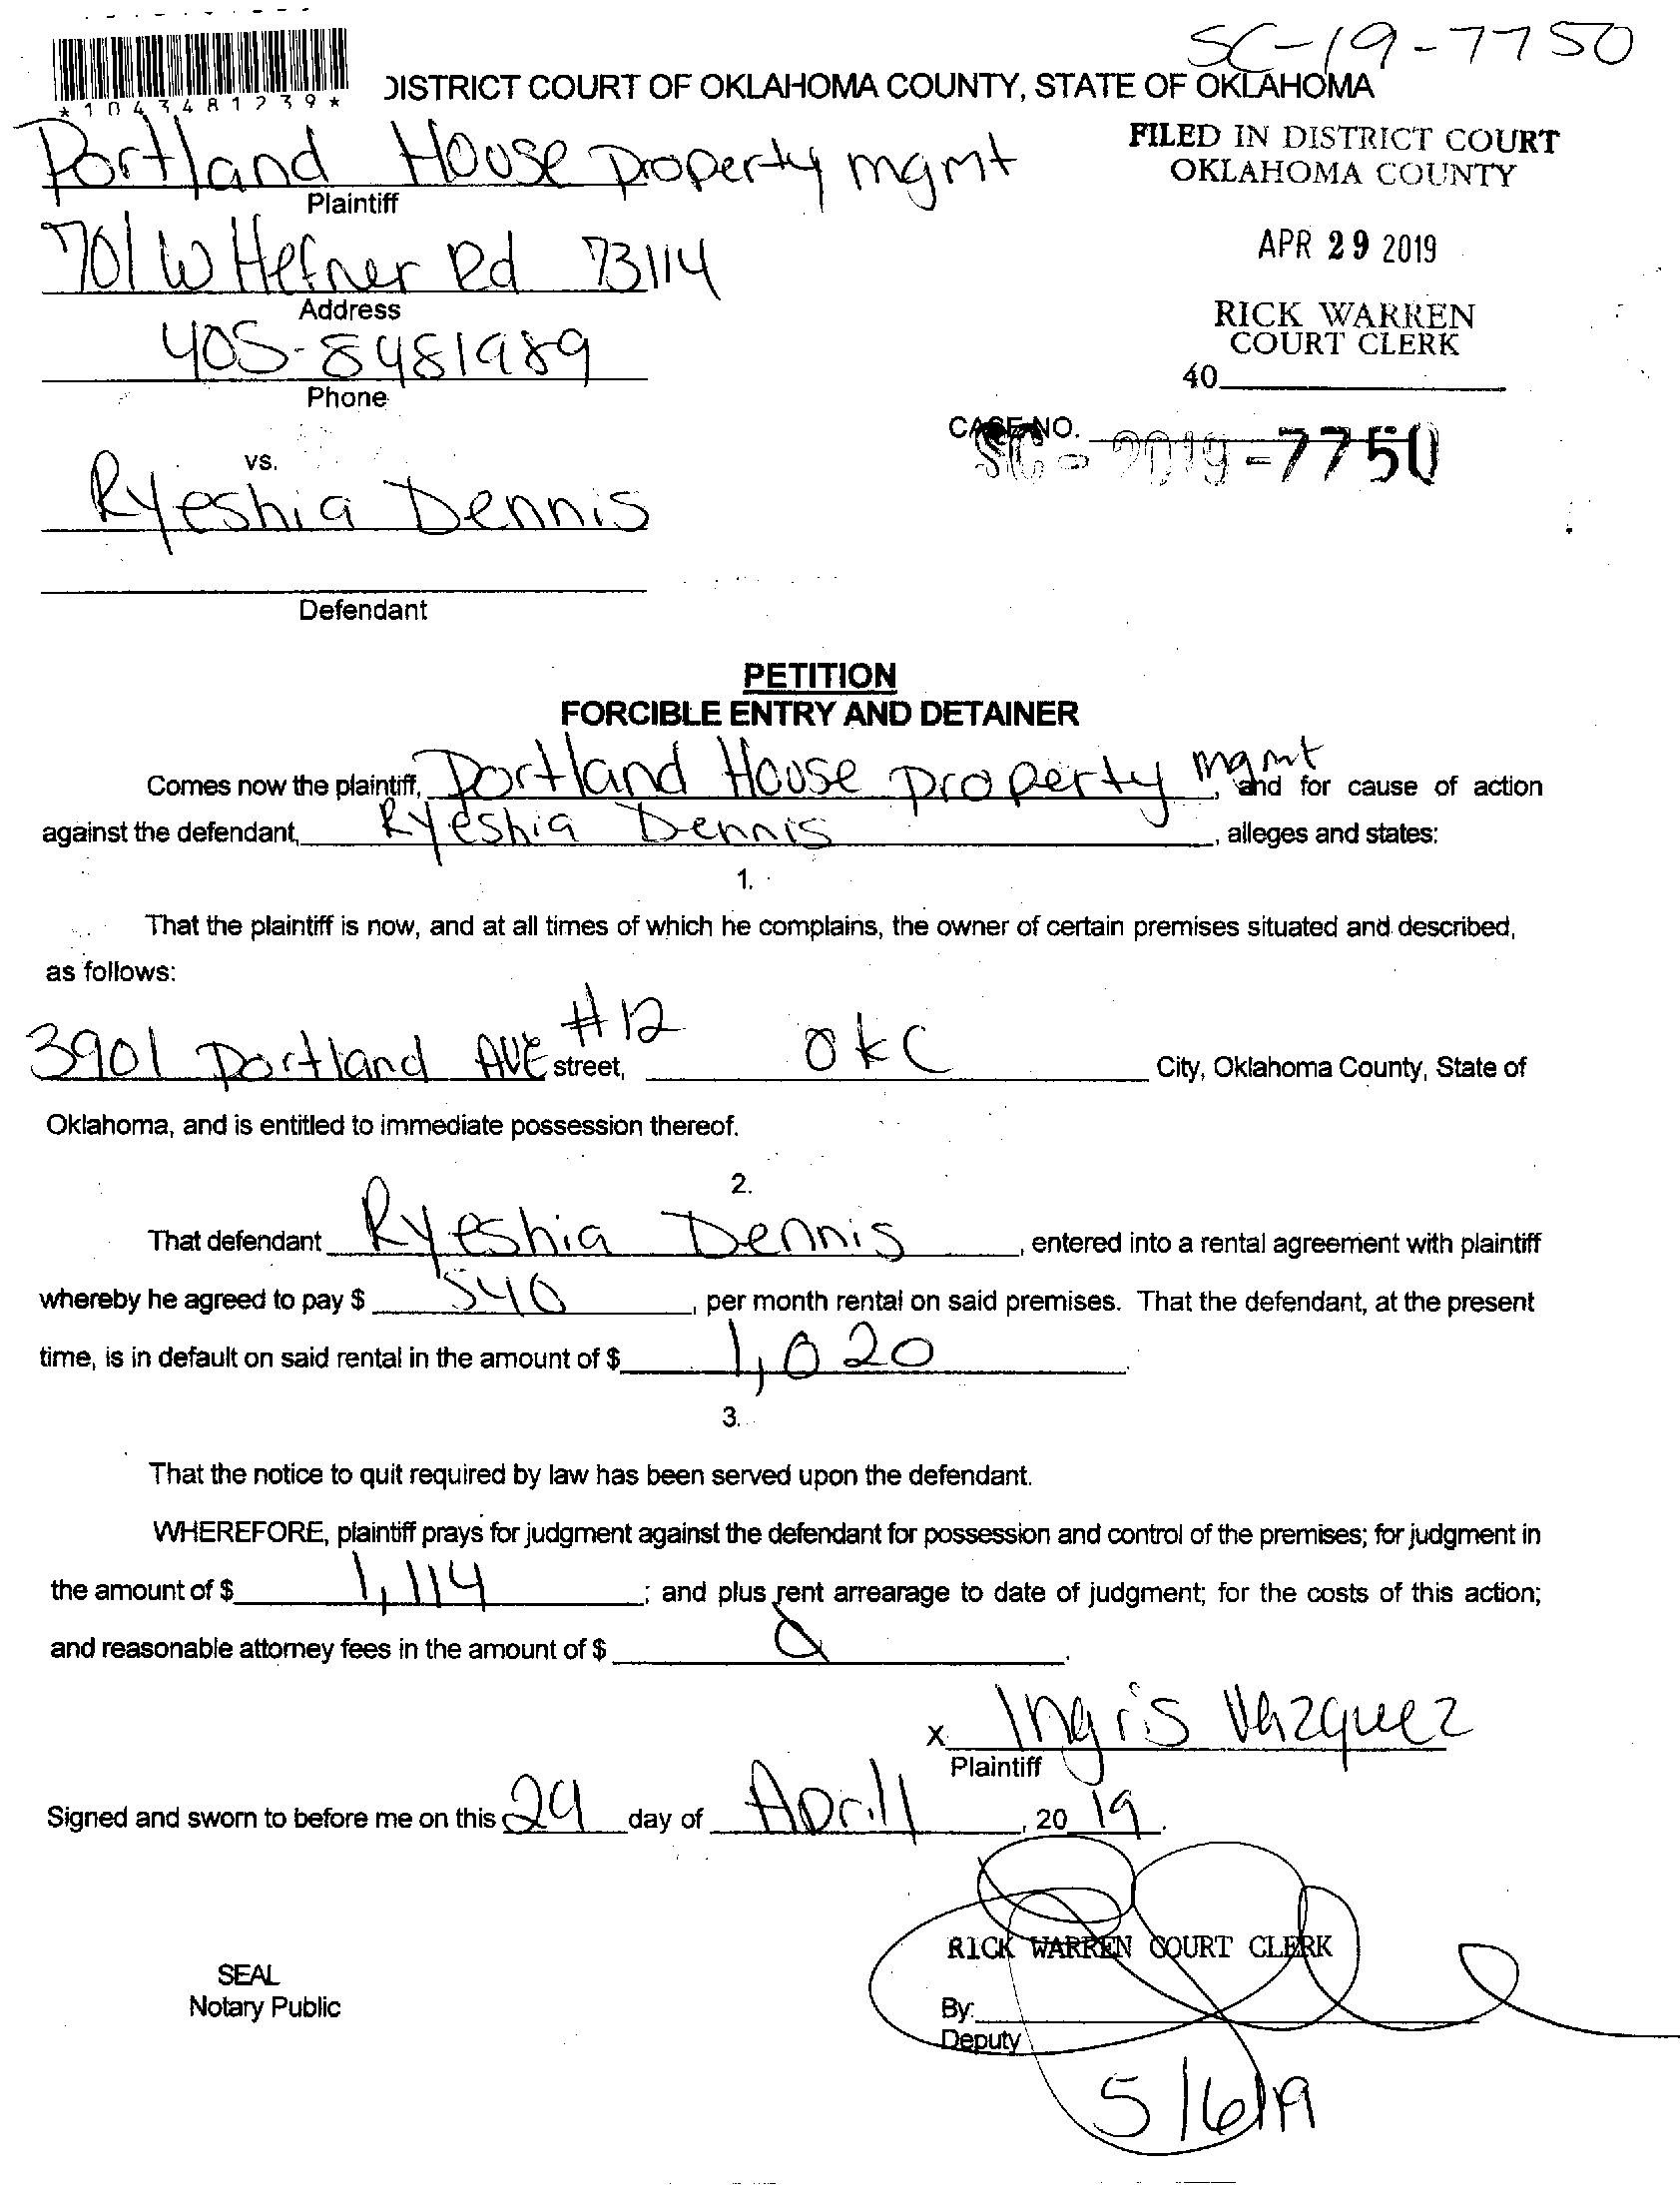 SC-19-7750
*1043481239*
DISTRICT COURT OF OKLAHOMA COUNTY, STATE OF OKLAHOMA
Portland House property mgmt
Plaintiff
FILED IN DISTRICT COURT
OKLAHOMA COUNTY
701 W Hefner Rd 73114
Address
APR 29 2019
405-8481989
Phone
RICK WARREN
COURT CLERK
40
CASE NO.
SC-2019-7750
vs.
Ryeshia Dennis
Defendant
PETITION
FORCIBLE ENTRY AND DETAINER
Comes now the plaintiff, Portland House property mgmt, and for cause of action
against the defendant, Ryeshia Dennis, alleges and states:
1.
That the plaintiff is now, and at all times of which he complains, the owner of certain premises situated and described,
as follows:
3901 Portland AVE #12 street, OKC City, Oklahoma County, State of
Oklahoma, and is entitled to immediate possession thereof.
2.
That defendant Ryeshia Dennis, entered into a rental agreement with plaintiff
whereby he agreed to pay $ 540, per month rental on said premises. That the defendant, at the present
time, is in default on said rental in the amount of $ 1,020.
3.
That the notice to quit required by law has been served upon the defendant.
WHEREFORE, plaintiff prays for judgment against the defendant for possession and control of the premises; for judgment in
the amount of $ 1,114; and plus rent arrearage to date of judgment; for the costs of this action;
and reasonable attorney fees in the amount of $
x Ingris Vazquez
Plaintiff
Signed and sworn to before me on this 29 day of Aprill, 20 19.
RICK WARREN COURT CLERK
SEAL
Notary Public
By:
Deputy
5/6/19